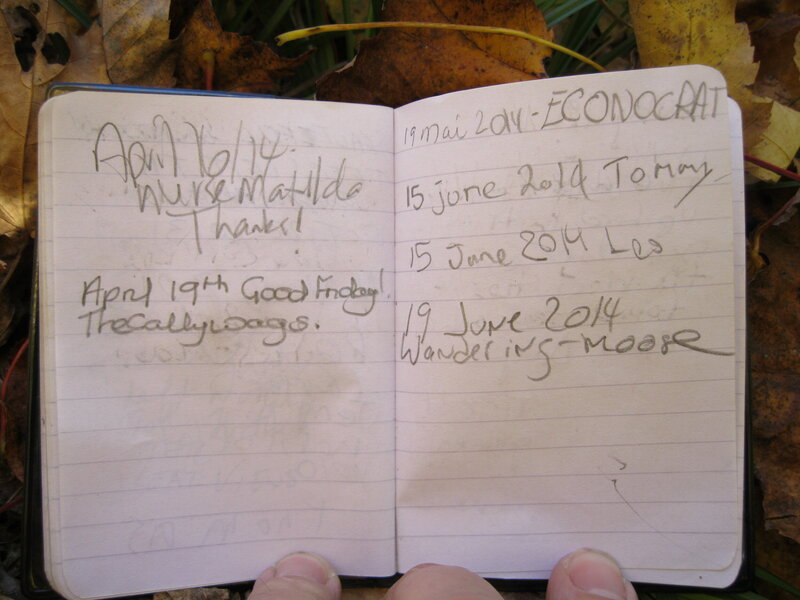 April 16/14.
Nurse Matilda
Thanks!
April 19th Good Friday!
TheCallywags.
19 Mai 2014 - ECONOCRAT
15 june 2014 Tommy
15 June 2014 Leo
19 June 2014
Wandering-moose